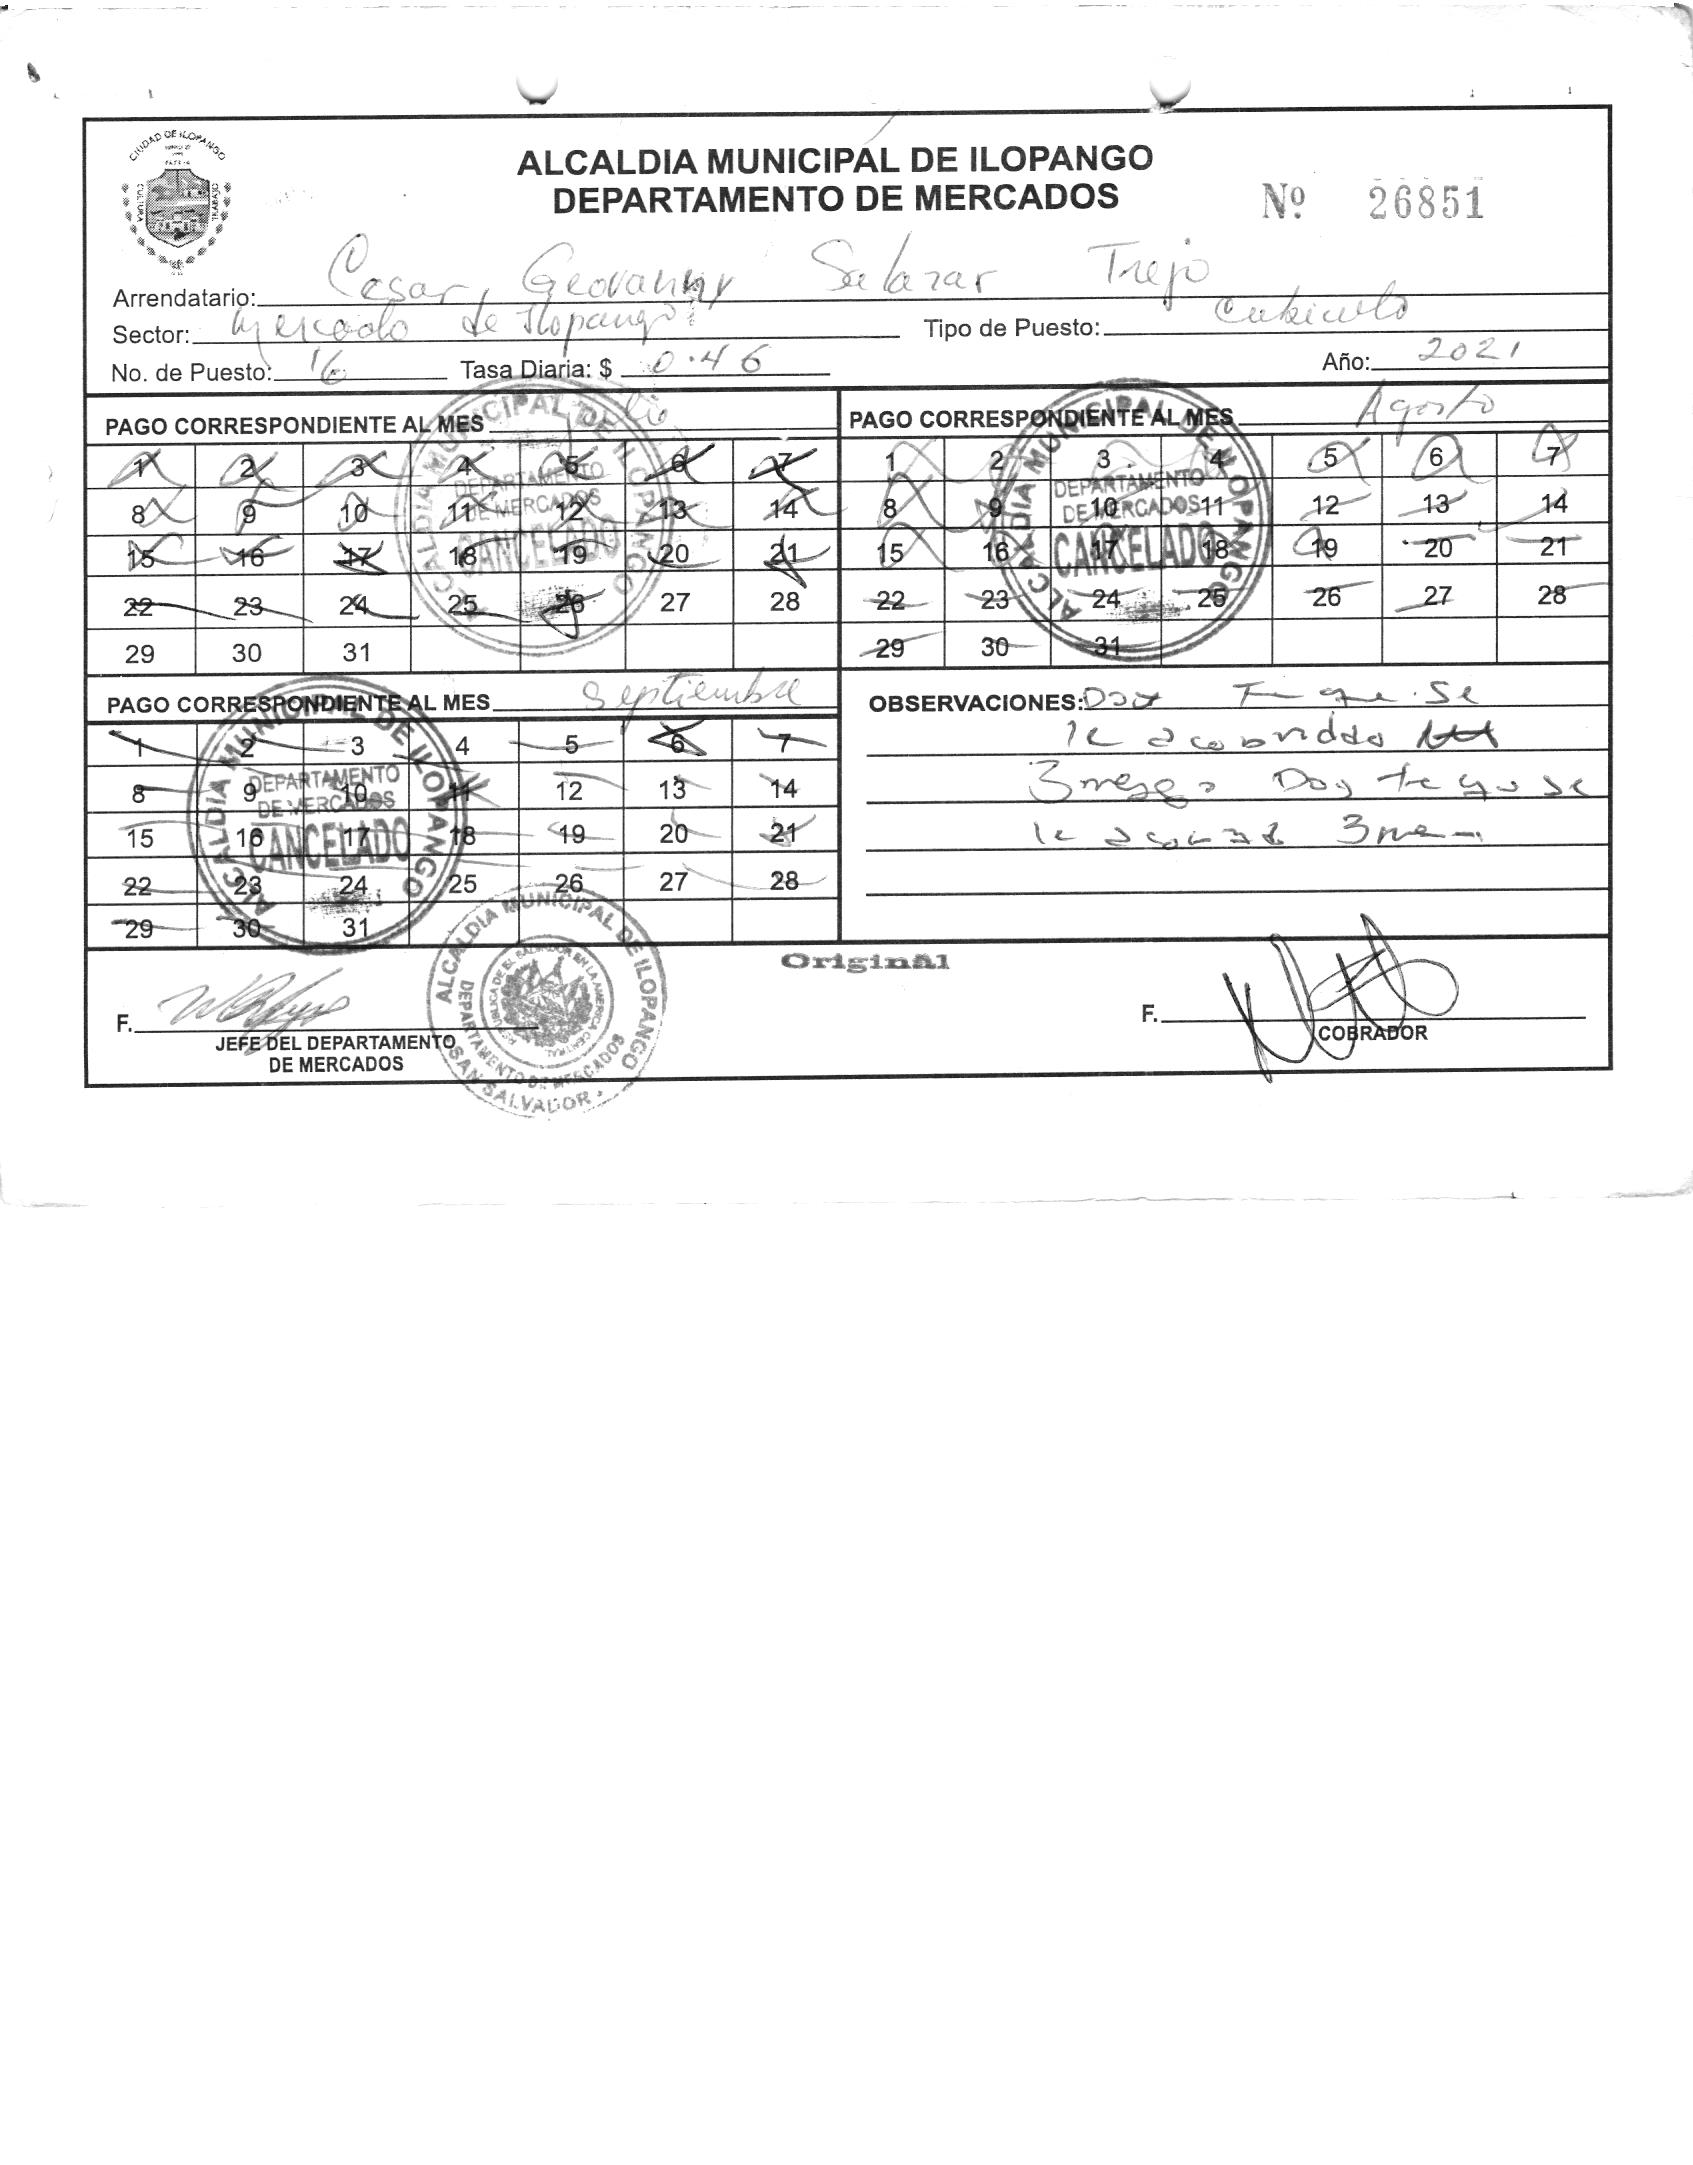 CIUDAD DE ILOPANGO
CULTURA
TRABAJO
ALCALDIA MUNICIPAL DE ILOPANGO
DEPARTAMENTO DE MERCADOS
Nº 26851
Arrendatario: Cesar Geovanny Salazar Trejo
Sector: Mercado de Ilopango Tipo de Puesto: Cubiculo
No. de Puesto: 16 Tasa Diaria: $ 0.46 Año: 2021
PAGO CORRESPONDIENTE AL MES Julio
1 2 3 4 5 6 7
8 9 10 11 12 13 14
15 16 17 18 19 20 21
22 23 24 25 26 27 28
29 30 31
ALCALDIA MUNICIPAL DE ILOPANGO
DEPARTAMENTO
DE MERCADOS
CANCELADO
PAGO CORRESPONDIENTE AL MES Agosto
1 2 3 4 5 6 7
8 9 10 11 12 13 14
15 16 17 18 19 20 21
22 23 24 25 26 27 28
29 30 31
ALCALDIA MUNICIPAL DE ILOPANGO
DEPARTAMENTO
DE MERCADOS
CANCELADO
PAGO CORRESPONDIENTE AL MES Septiembre
1 2 3 4 5 6 7
8 9 10 11 12 13 14
15 16 17 18 19 20 21
22 23 24 25 26 27 28
29 30 31
ALCALDIA MUNICIPAL DE ILOPANGO
DEPARTAMENTO
DE MERCADOS
CANCELADO
OBSERVACIONES: Doy que se
le
3 Doy se
le 3
Original
F.
JEFE DEL DEPARTAMENTO
DE MERCADOS
ALCALDIA MUNICIPAL DE ILOPANGO
DEPARTAMENTO DE MERCADOS
REPUBLICA DE EL SALVADOR EN LA AMERICA CENTRAL
SAN SALVADOR
F.
COBRADOR